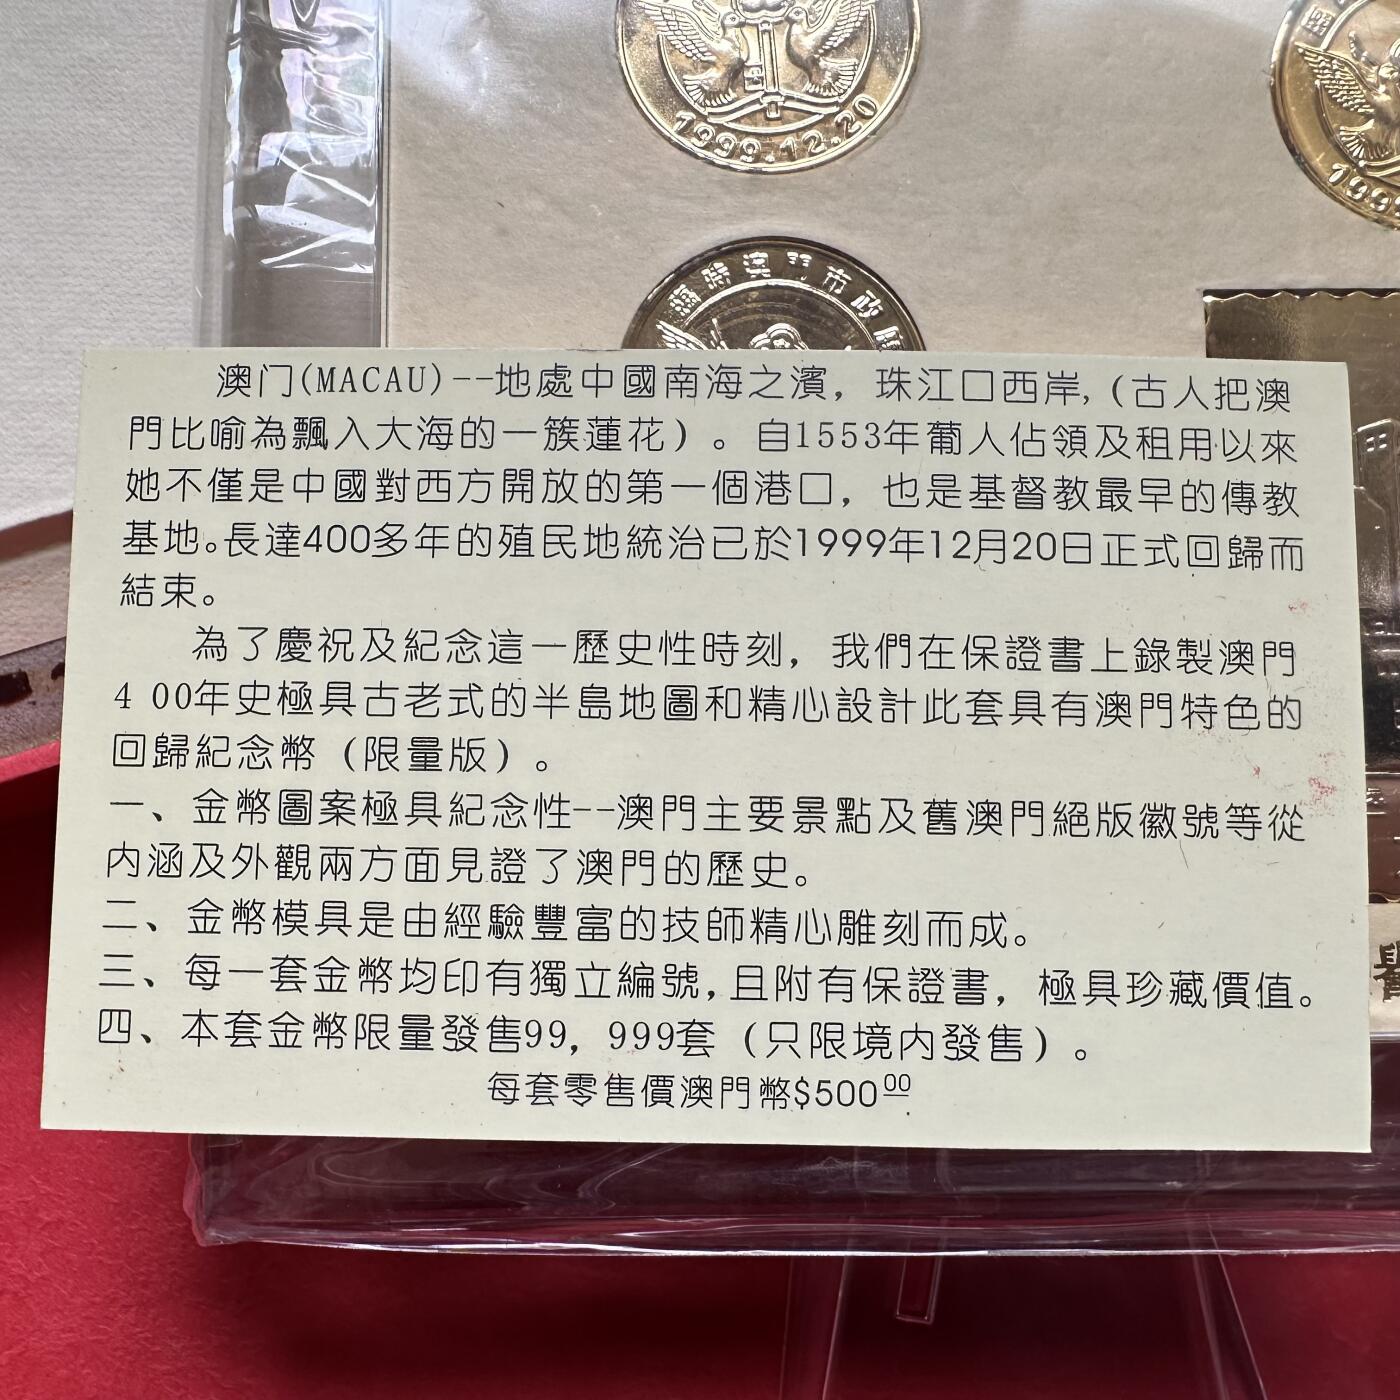 1999.12.20
1999
海島澳門市政
澳门(MACAU)--地處中國南海之濱，珠江口西岸,（古人把澳
門比喻為飄入大海的一簇蓮花）。自1553年葡人佔領及租用以來
她不僅是中國對西方開放的第一個港口，也是基督教最早的傳教
基地。長達400多年的殖民地統治已於1999年12月20日正式回歸而
結束。
為了慶祝及紀念這一歷史性時刻，我們在保證書上錄製澳門
4 00年史極具古老式的半島地圖和精心設計此套具有澳門特色的
回歸紀念幣（限量版）。
一、金幣圖案極具紀念性--澳門主要景點及舊澳門絕版徽號等從
內涵及外觀兩方面見證了澳門的歷史。
二、金幣模具是由經驗豐富的技師精心雕刻而成。
三、每一套金幣均印有獨立編號,且附有保證書，極具珍藏價值。
四、本套金幣限量發售99，999套（只限境內發售）。
每套零售價澳門幣$50000